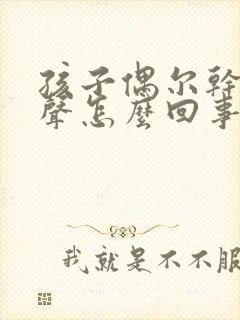 孩子偶尔幹
聲怎麽回事
我就是不不服